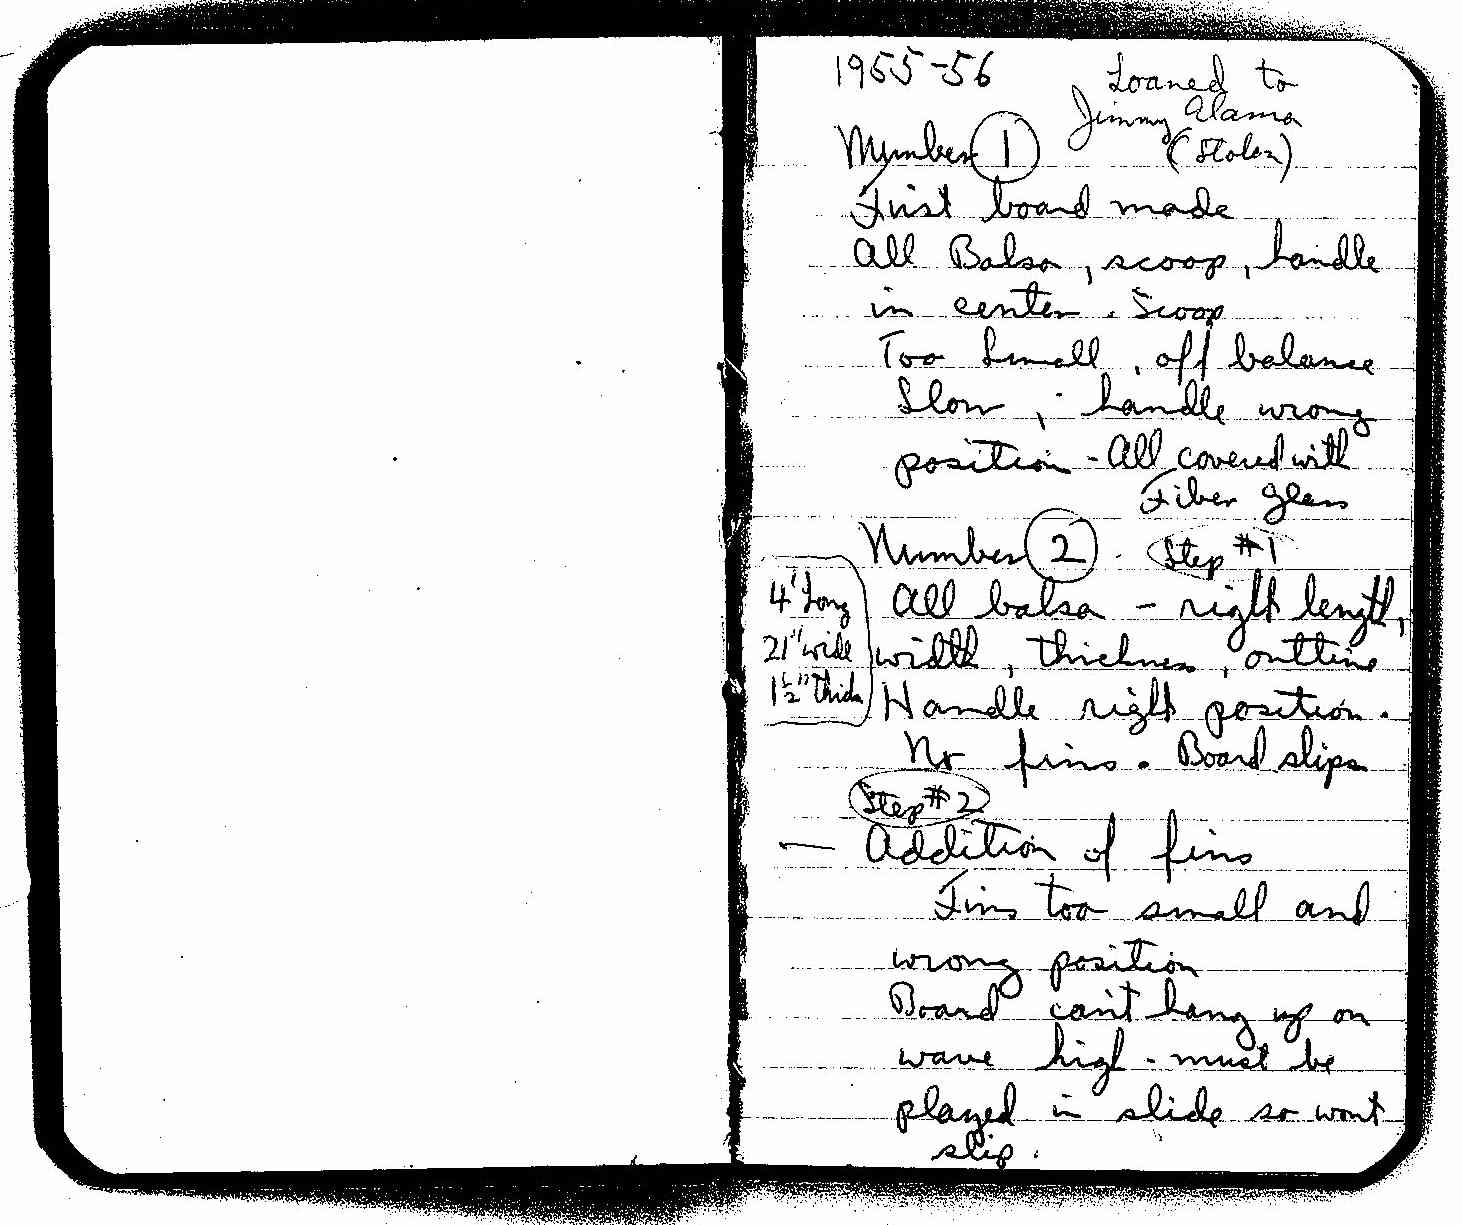 1955-56
Loaned to
Jimmy Alama
(Stolen)
Number 1
First board made
All Balsa, scoop, handle
in center. Scoop
Too small, off balance
Slow, handle wrong
position - All covered with
Fiber glass
Number 2. Step #1
4' Long
21" wide
1 1/2" thick
All balsa - right length,
width, thickness, outline
Handle right position.
No fins. Board slips
Step #2
— Addition of fins
Fins too small and
wrong position
Board can't hang up on
wave high - must be
played in slide so wont
slip.